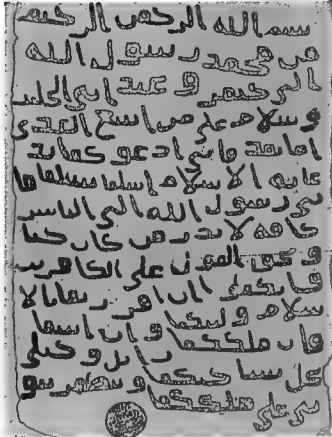 بسم الله الرحمن الرحيم
من محمد رسول الله
الى جيفر و عبد ابني الجلند
ى سلام على من اتبع الهدى
اما بعد فاني ادعو كما بد
عايه الا سلام اسلما تسلما فا
ني رسول الله الى الناس
كافه لا نذر من كان حيا
و يحق القول على الكافرين
فانكما ان اقر رتما بالا
سلام و ليتكما و ان ابيتما
فان ملككما زايل و خيلي
تحل بساحتكما و تظهر نبو
تي على ملككما